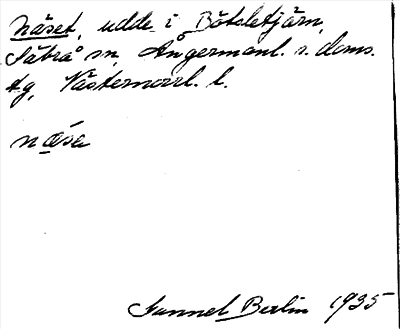 Näset, udde i Båtsletjärn,
Säbrå sn, Ångermanl. s. doms.
tg, Västernorrl. l.
næsa
Gunnel Berlin 1935